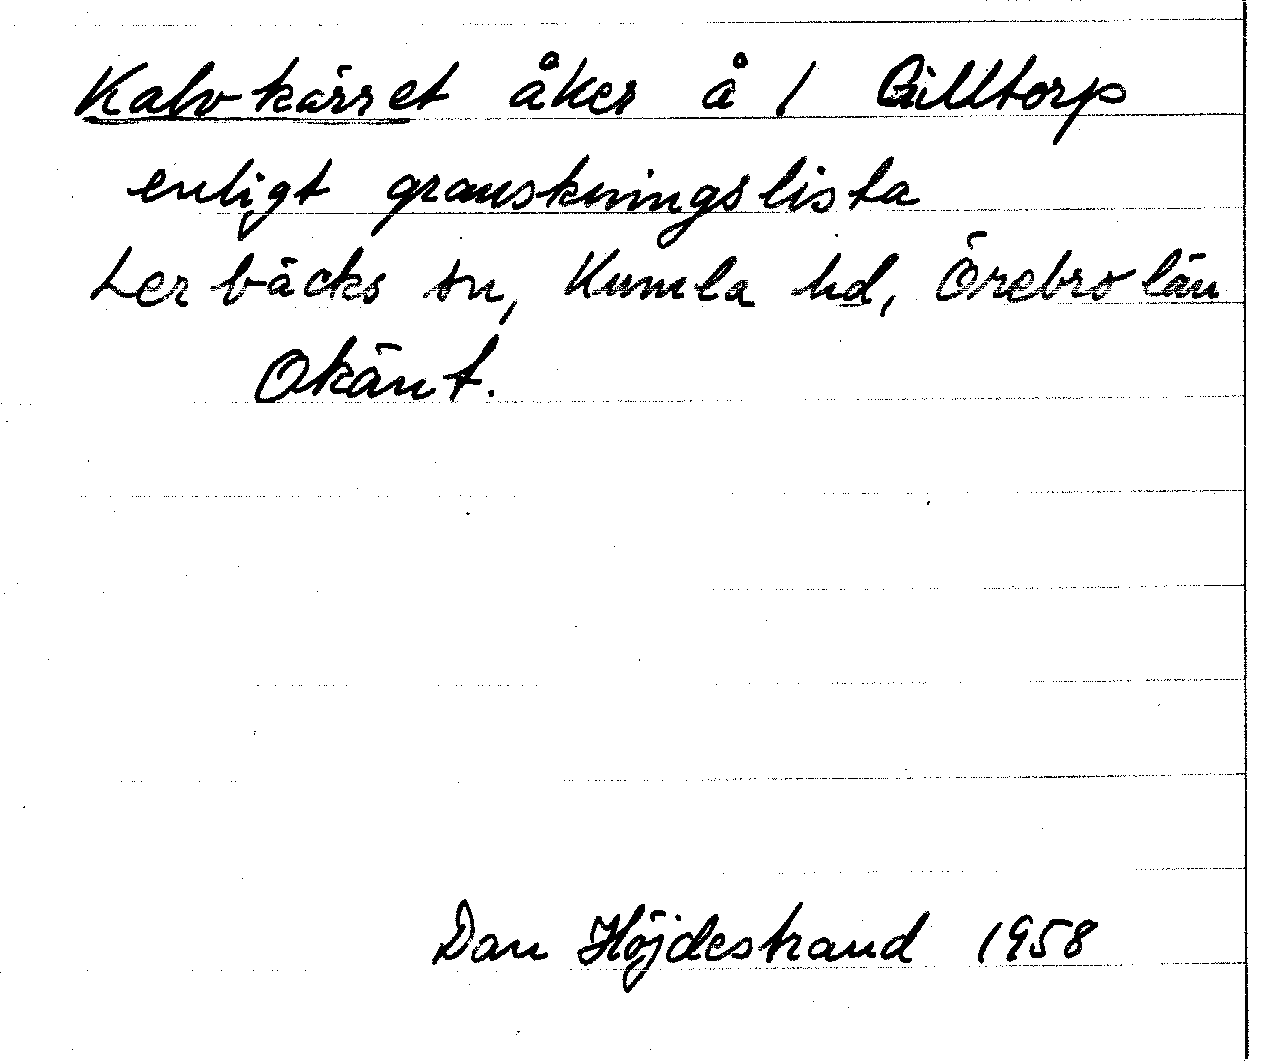 Kalvkärret åker å 1 Gilltorp
enligt granskningslista
Lerbäcks sn, Kumla hd, Örebro län
Okänt.
Dan Höjdestrand 1958